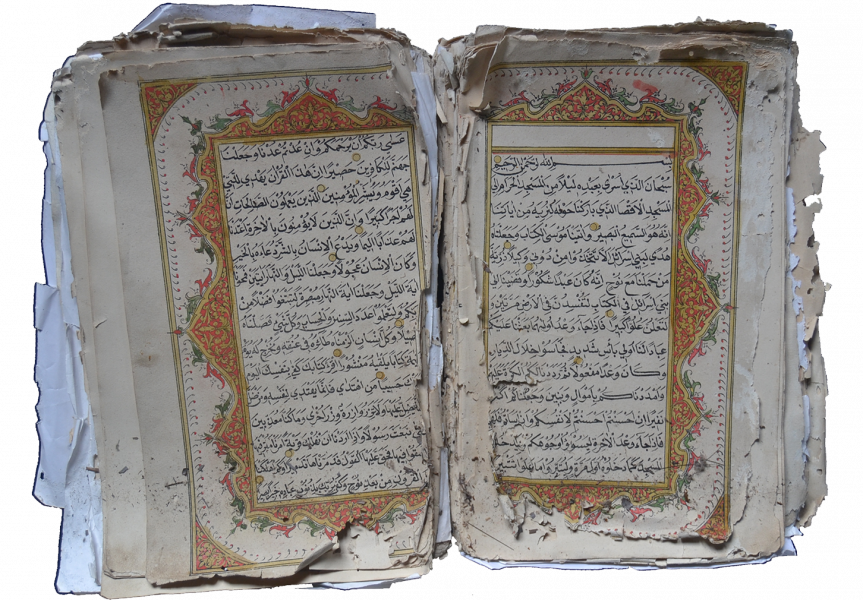 بسم الله الرحمن الرحيم
سبحان الذي أسرى بعبده ليلا من المسجد الحرام الى
المسجد الاقصا الذي باركنا حوله لنريه من اياتنا
انه هو السميع البصير واتينا موسى الكتاب وجعلناه
هدى لبني اسرائل الا تتخذوا من دوني وكيلا ذرية
من حملنا مع نوح انه كان عبدا شكورا وقضينا الى
بني اسرائل في الكتاب لتفسدن في الارض مرتين
ولتعلن علوا كبيرا فاذا جاء وعد اولهما بعثنا عليكم
عبادا لنا اولي بأس شديد فجاسوا خلال الديار
وكان وعدا مفعولا ثم رددنا لكم الكرة
وامددناكم باموال وبنين وجعلناكم اكثر
نفيرا ان احسنتم احسنتم لانفسكم وان اسأتم فلها
فاذا جاء وعد الاخرة ليسوؤا وجوهكم وليدخلوا
المسجد كما دخلوه اول مرة وليتبروا ما علوا تتبيرا
عسى ربكم ان يرحمكم وان عدتم عدنا وجعلنا
جهنم للكافرين حصيرا ان هذا القرآن يهدي للتي
هي اقوم ويبشر المؤمنين الذين يعملون الصالحات ان
لهم اجرا كبيرا وان الذين لا يؤمنون بالاخرة اعتدنا
لهم عذابا اليما ويدع الانسان بالشر دعاءه بالخير
وكان الانسان عجولا وجعلنا الليل والنهار ايتين فمحونا
اية الليل وجعلنا اية النهار مبصرة لتبتغوا فضلا من
ربكم ولتعلموا عدد السنين والحساب وكل شيء فصلناه
تفصيلا وكل انسان الزمناه طائره في عنقه ونخرج له يوم
كتابا يلقاه منشورا اقرأ كتابك كفى بنفسك اليوم
حسيبا من اهتدى فانما يهتدي لنفسه ومن ضل
يضل عليها ولا تزر وازرة وزر اخرى وما كنا معذبين
حتى نبعث رسولا واذا اردنا ان نهلك قرية امرنا مترفيها
ففسقوا فيها فحق عليها القول فدمرناها تدميرا وكم اهلكنا
القرون من بعد نوح وكفى بربك بذنوب عباده خبيرا